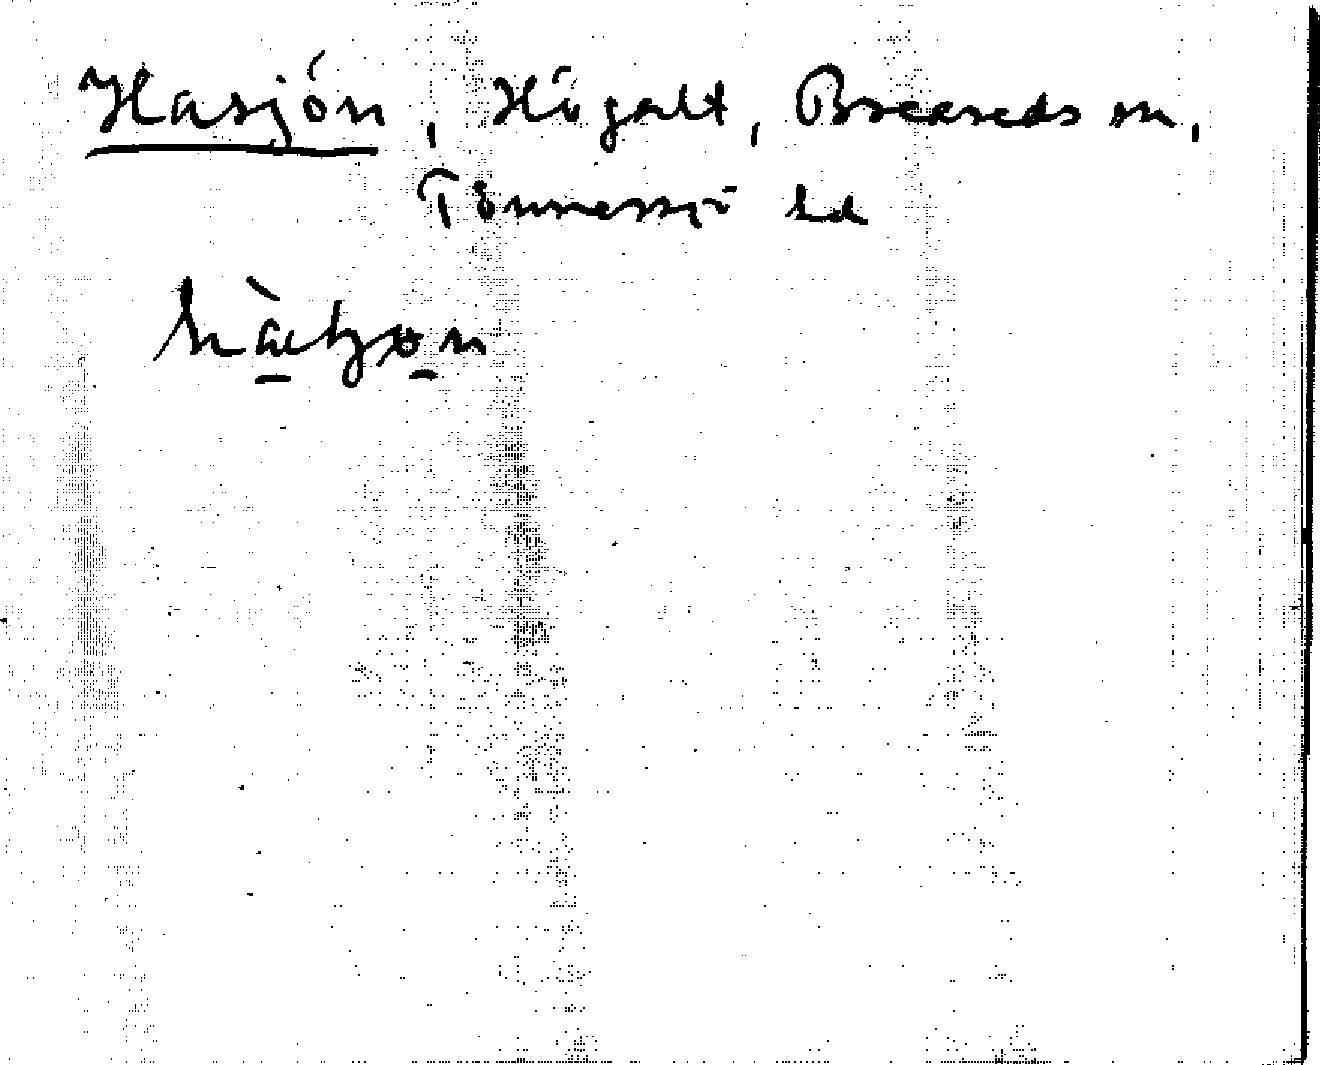 Hasjön, Högalt, Breareds sn,
Tönnersjö hd